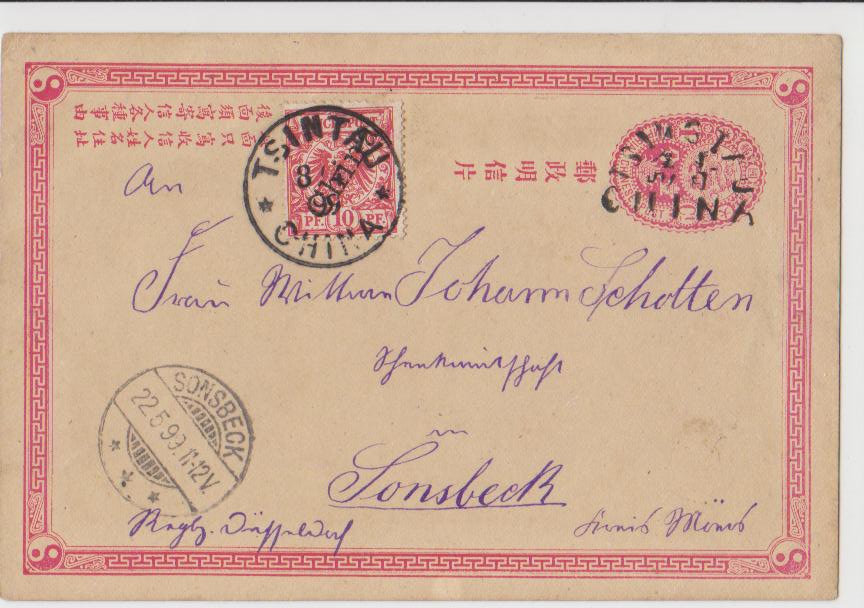 後面須寫寄信人各種事由
面只寫收信人姓名住址
郵政明信片
TSINTAU
CHINA
PF. 10 PF.
CHINA
An
Frau Wittwe Johann Scholten
Schenkwirthschaft
in
Sonsbeck
SONSBECK
22.5.99.11-12V.
Regbz. Düsseldorf Kreis Mörs